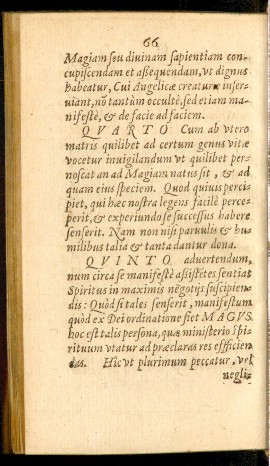 66
Magiam seu divinam sapientiam con-
cupiscendam et assequendam, vt dignus
habeatur, Cui Angelicæ creaturæ inser-
viant, nō tantùm occultè, sed etiam ma-
nifestè, & de facie ad faciem.
QVARTO Cum ab vtero
matris quilibet ad certum genus vitæ
vocetur invigilandum vt quilibet per-
noscat an ad Magiam natus sit, & ad
quam eius speciem. Quod quiuis perci-
piet, qui hæc nostra legens facilè perce-
perit, & experiundo se successus habere
senserit. Nam non nisi paruulis & hu
milibus talia & tanta dantur dona.
QVINTO aduertendum,
num circa se manifestè assistētes sentiat
Spiritus in maximis nëgotijs suscipien-
dis: Quòd si tales senserit, manifestum
quòd ex Dei ordinatione fiet MAGVS
hoc est talis persona, quæ ministerio Spi-
rituum vtatur ad præclaras res efficien
das. Hic vt plurimum peccatur, vel
negli-